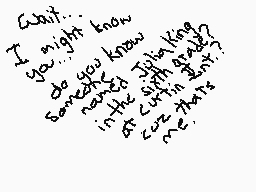 Wait...
I might know
you...
do you know
someone
named Julia King
in the sixth grade?
at curtin Mont.?
cuz thats
me.